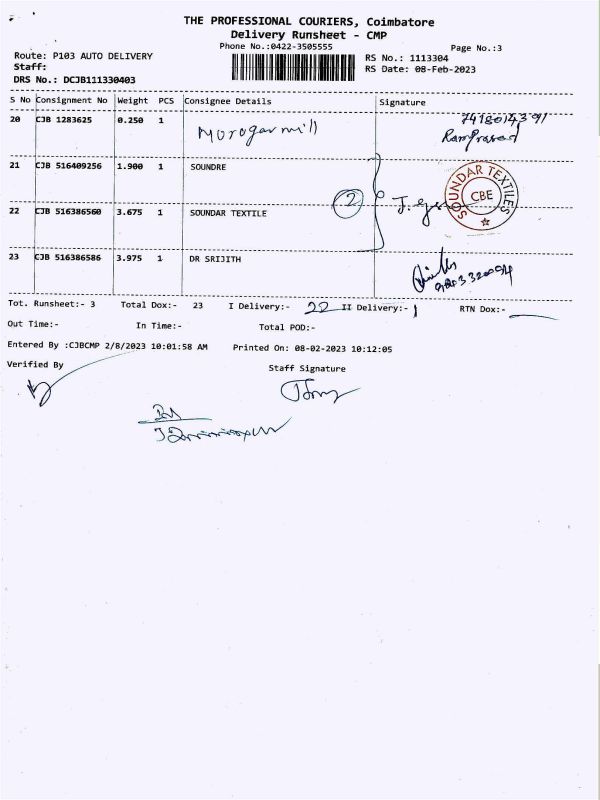 THE PROFESSIONAL COURIERS, Coimbatore
Delivery Runsheet - CMP
Phone No.:0422-3505555
Page No.:3
Route: P103 AUTO DELIVERY
RS No.: 1113304
Staff:
RS Date: 08-Feb-2023
DRS No.: DCJB111330403
S No Consignment No Weight PCS Consignee Details Signature
20 CJB 1283625 0.250 1 Morogan mill
RamPrasad
21 CJB 516409256 1.900 1 SOUNDRE
SOUNDAR TEXTILES
CBE
2
22 CJB 516386560 3.675 1 SOUNDAR TEXTILE
23 CJB 516386586 3.975 1 DR SRIJITH
Tot. Runsheet:- 3 Total Dox:- 23 I Delivery:- 22 II Delivery:- 1 RTN Dox:-
Out Time:- In Time:- Total POD:-
Entered By :CJBCMP 2/8/2023 10:01:58 AM Printed On: 08-02-2023 10:12:05
Verified By Staff Signature